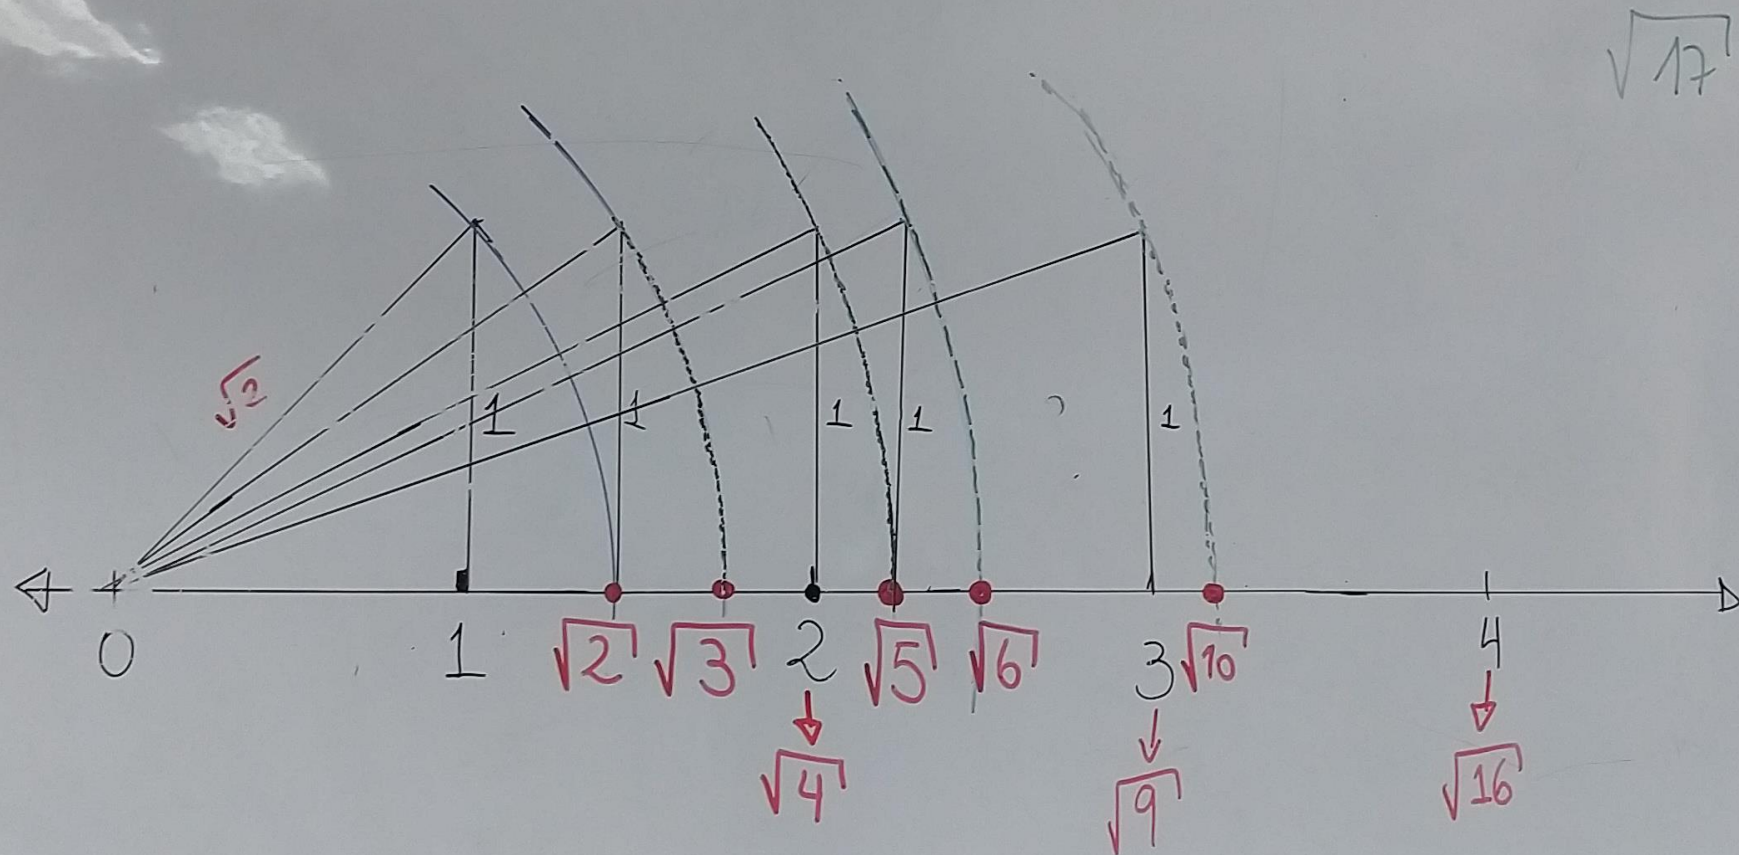 √17
√2
1 1 1 1 1
0 1 √2 √3 2 √5 √6 3 √10 4
√4 √9 √16